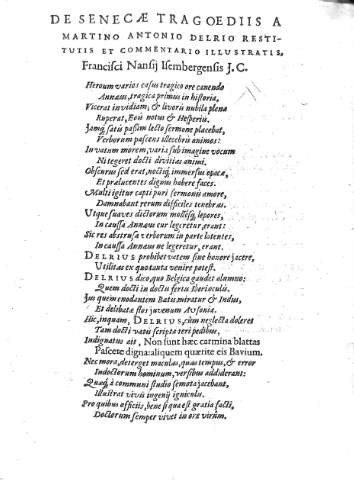 DE SENECÆ TRAGOEDIIS A
MARTINO ANTONIO DELRIO RESTI-
TUTIS ET COMMENTARIO ILLUSTRATIS,
Francisci Nansij Isembergensis J. C.
Heroum varios casus tragico ore canendo
Annæus, tragica primus in historia,
Vicerat invidiam, & livoris nubila plena
Ruperat, Eois notus & Hesperiis.
Jamq́; satis passim lecto sermone placebat,
Verborum pascens illecebris animos:
In vatum morem, varia sub imagine vocum
Ni tegeret docti divitias animi.
Obscurus sed erat, noctiq́; immersus opacæ,
Et prælucentes dignus habere faces.
Multi igitur capti puri sermonis amore,
Damnabant rerum difficiles tenebras.
Utque suaves dictorum mollisq́; lepores,
In caussa Annæus cur legeretur, erant:
Sic res abstrusa verborum in parte latentes,
In caussa Annæus ne legeretur, erant.
DELRIUS prohibet vatem sine honore jacere,
Utilitas ex quo tanta venire potest.
DELRIUS duo, quo Belgica gaudet alumno:
Quem docti in doctis fertis Barioculis.
Jus quem enodantem Batus miratur & Indus,
Et delibata flos juvenum Ausonia.
Hic, inquam, DELRIUS, cùm neglecta doleret
Tam docti vatis scripta teri pedibus,
Indignatus ait, Non sunt hæc carmina blattas
Pascere digna: aliquem quærite eis Bavium.
Nec mora, deterget maculas, quas tempus, & error
Indoctorum hominum, versibus addiderant:
Quæq́; à communi studio semota jacebant,
Illustrat vivis ingenij igniculis.
Pro quibus officiis, bene si qua est gratia facti,
Doctorum semper vivet in ore virûm.